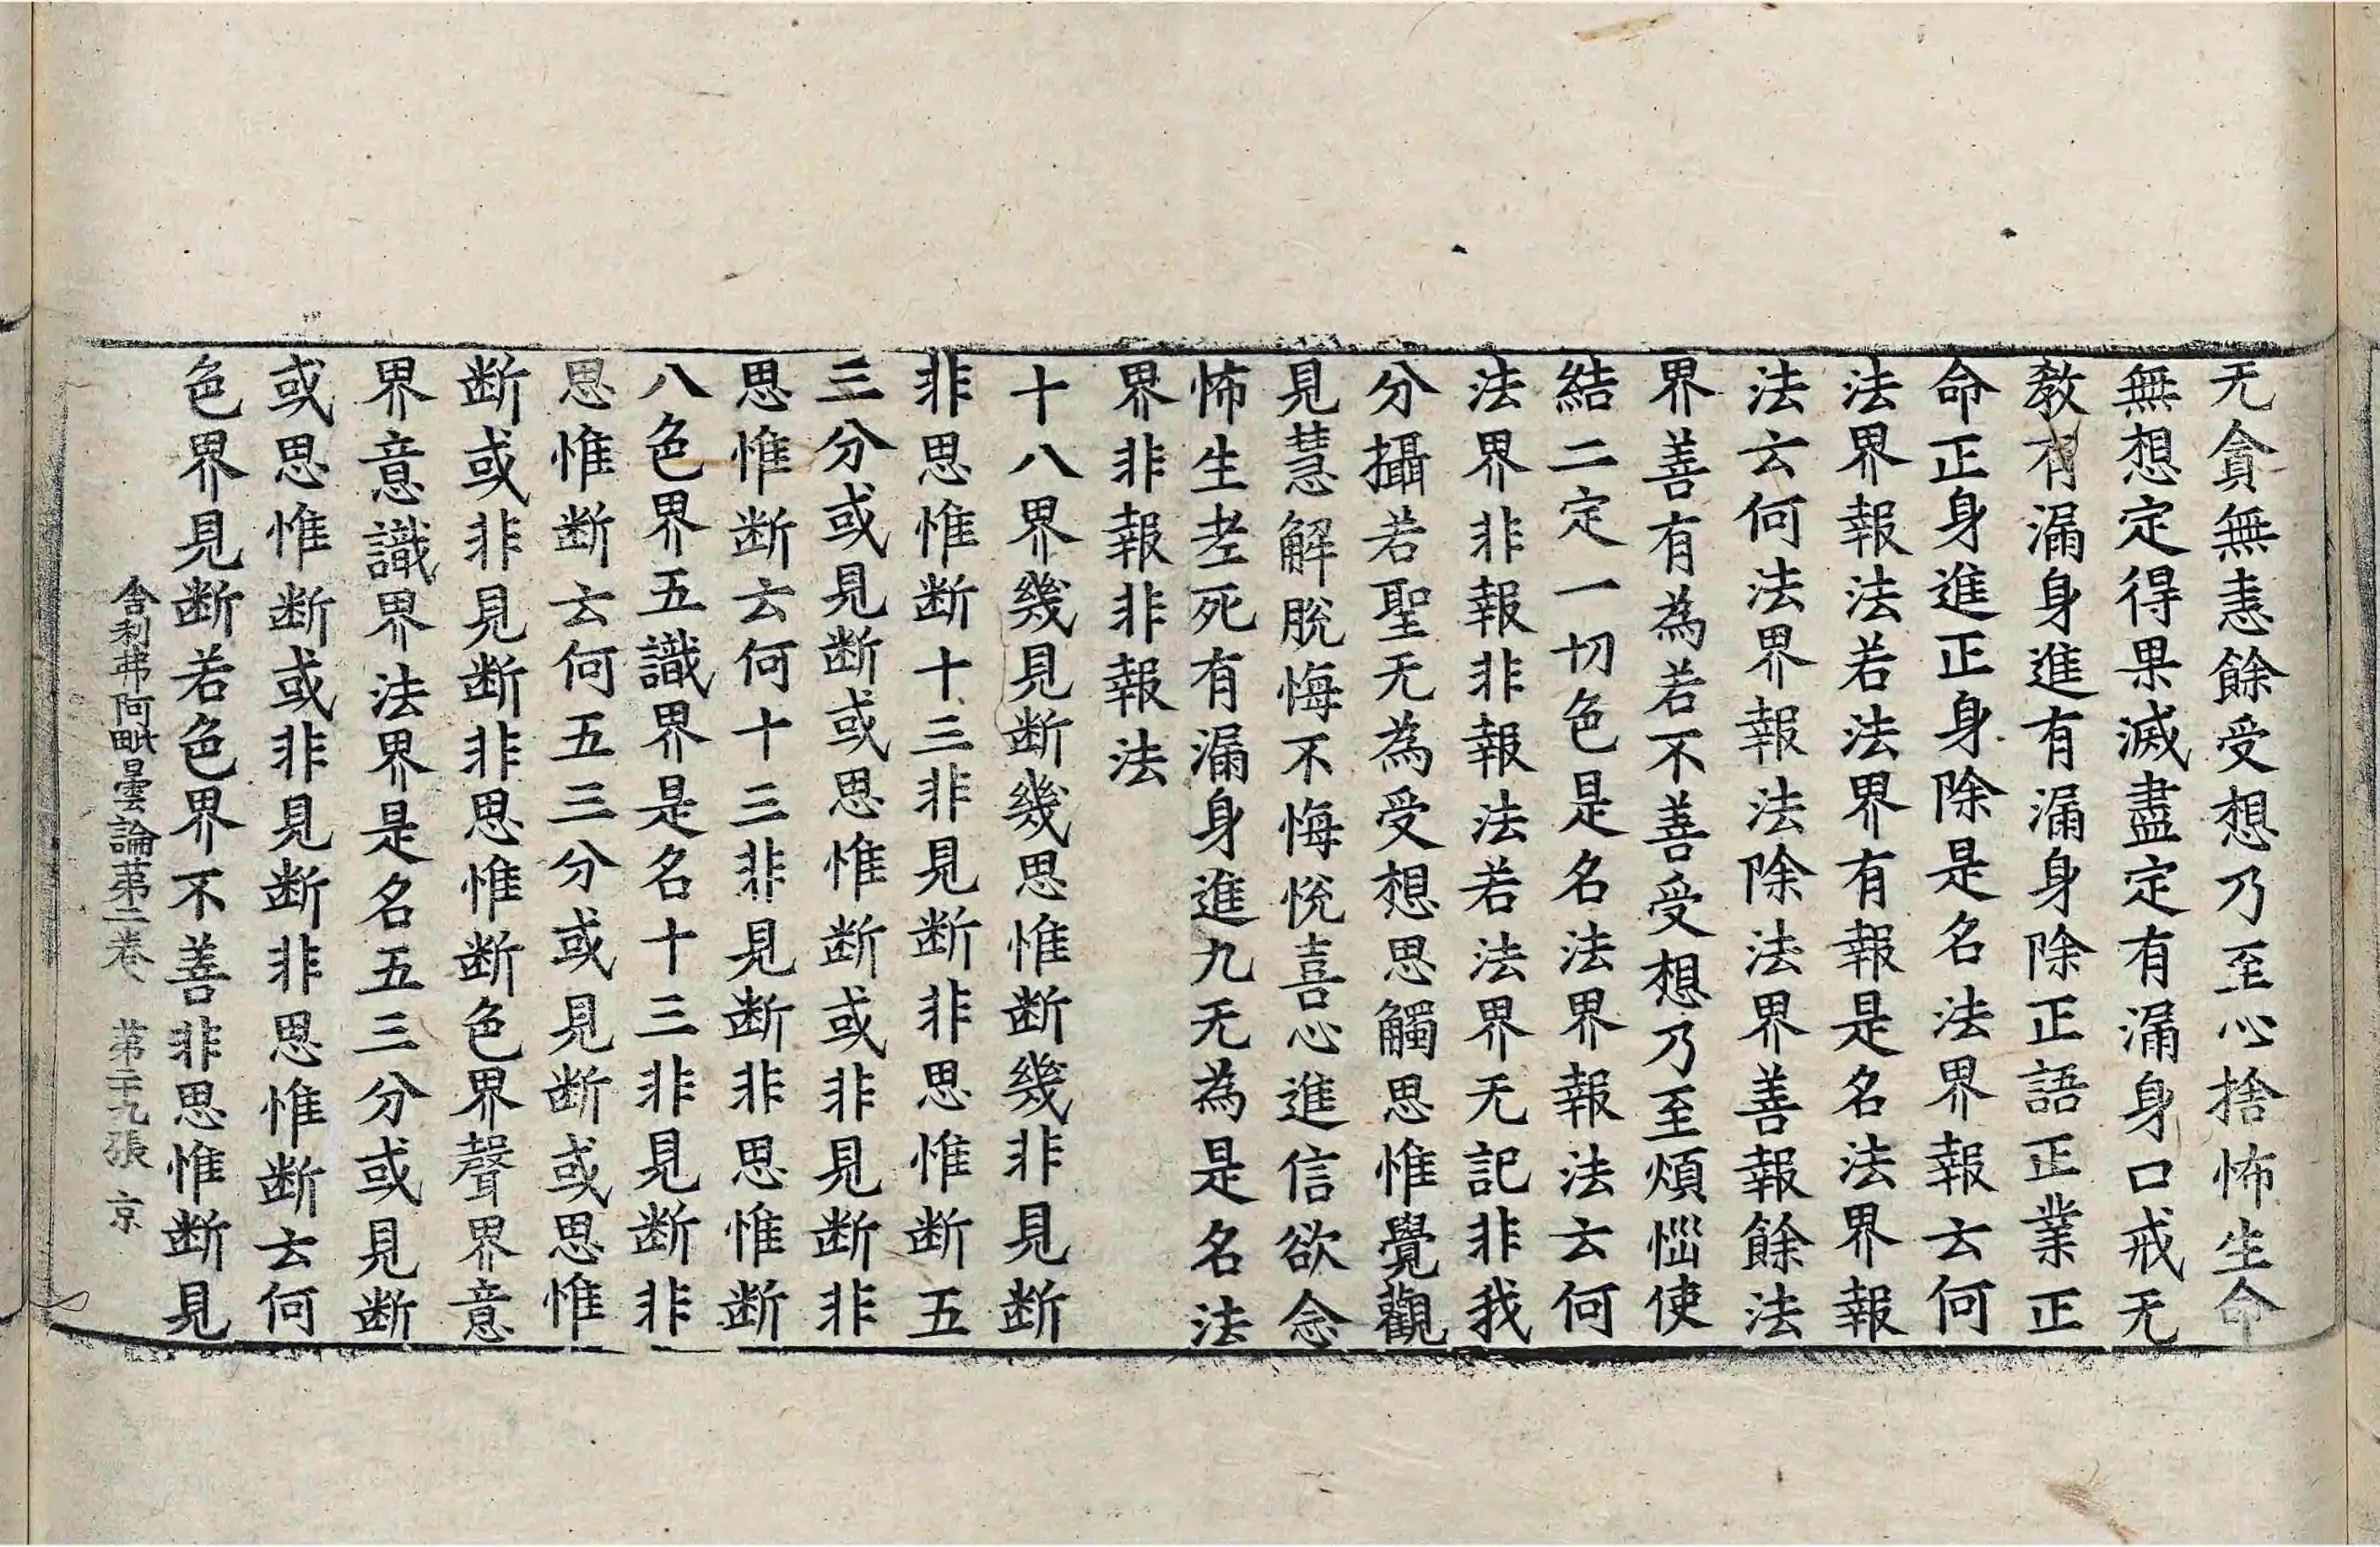 无貪無恚餘受想乃至心捨怖生命
無想定得果滅盡定有漏身口戒无
教有漏身進有漏身除正語正業正
命正身進正身除是名法界報云何
法界報法若法界有報是名法界報
法云何法界報法除法界善報餘法
界善有為若不善受想乃至煩惱使
結二定一切色是名法界報法云何
法界非報非報法若法界无記非我
分攝若聖无為受想思觸思惟覺觀
見慧解脫悔不悔悅喜心進信欲念
怖生老死有漏身進九无為是名法
界非報非報法
十八界幾見断幾思惟断幾非見断
非思惟断十三非見断非思惟断五
三分或見断或思惟断或非見断非
思惟断云何十三非見断非思惟断
八色界五識界是名十三非見断非
思惟断云何五三分或見断或思惟
断或非見断非思惟断色界聲界意
界意識界法界是名五三分或見断
或思惟断或非見断非思惟断云何
色界見断若色界不善非思惟断見
舍利弗阿毗曇論苐二卷 苐二十九張 京